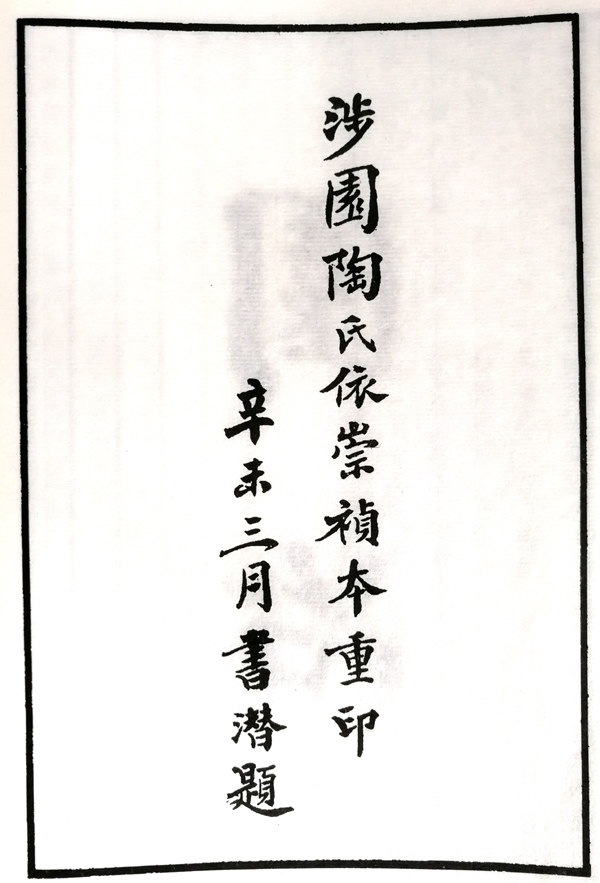 涉園陶氏依崇禎本重印
辛未三月書潛題